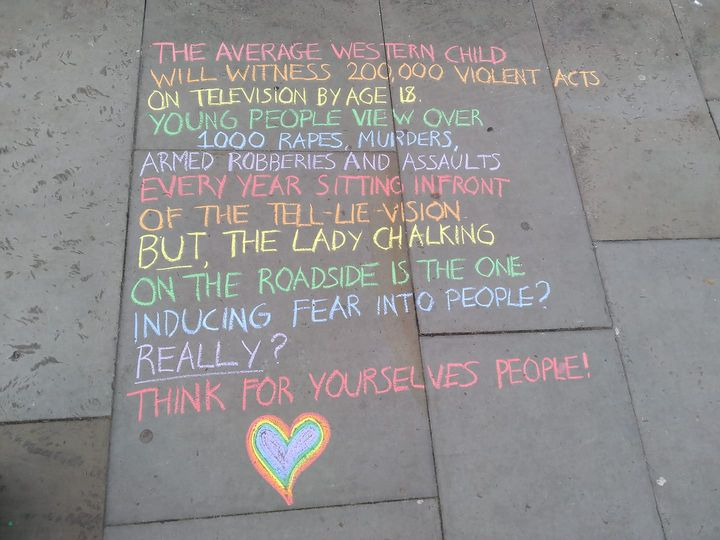 THE AVERAGE WESTERN CHILD
WILL WITNESS 200,000 VIOLENT ACTS
ON TELEVISION BY AGE 18.
YOUNG PEOPLE VIEW OVER
1000 RAPES, MURDERS,
ARMED ROBBERIES AND ASSAULTS
EVERY YEAR SITTING INFRONT
OF THE TELL-LIE-VISION
BUT, THE LADY CHALKING
ON THE ROADSIDE IS THE ONE
INDUCING FEAR INTO PEOPLE?
REALLY?
THINK FOR YOURSELVES PEOPLE!